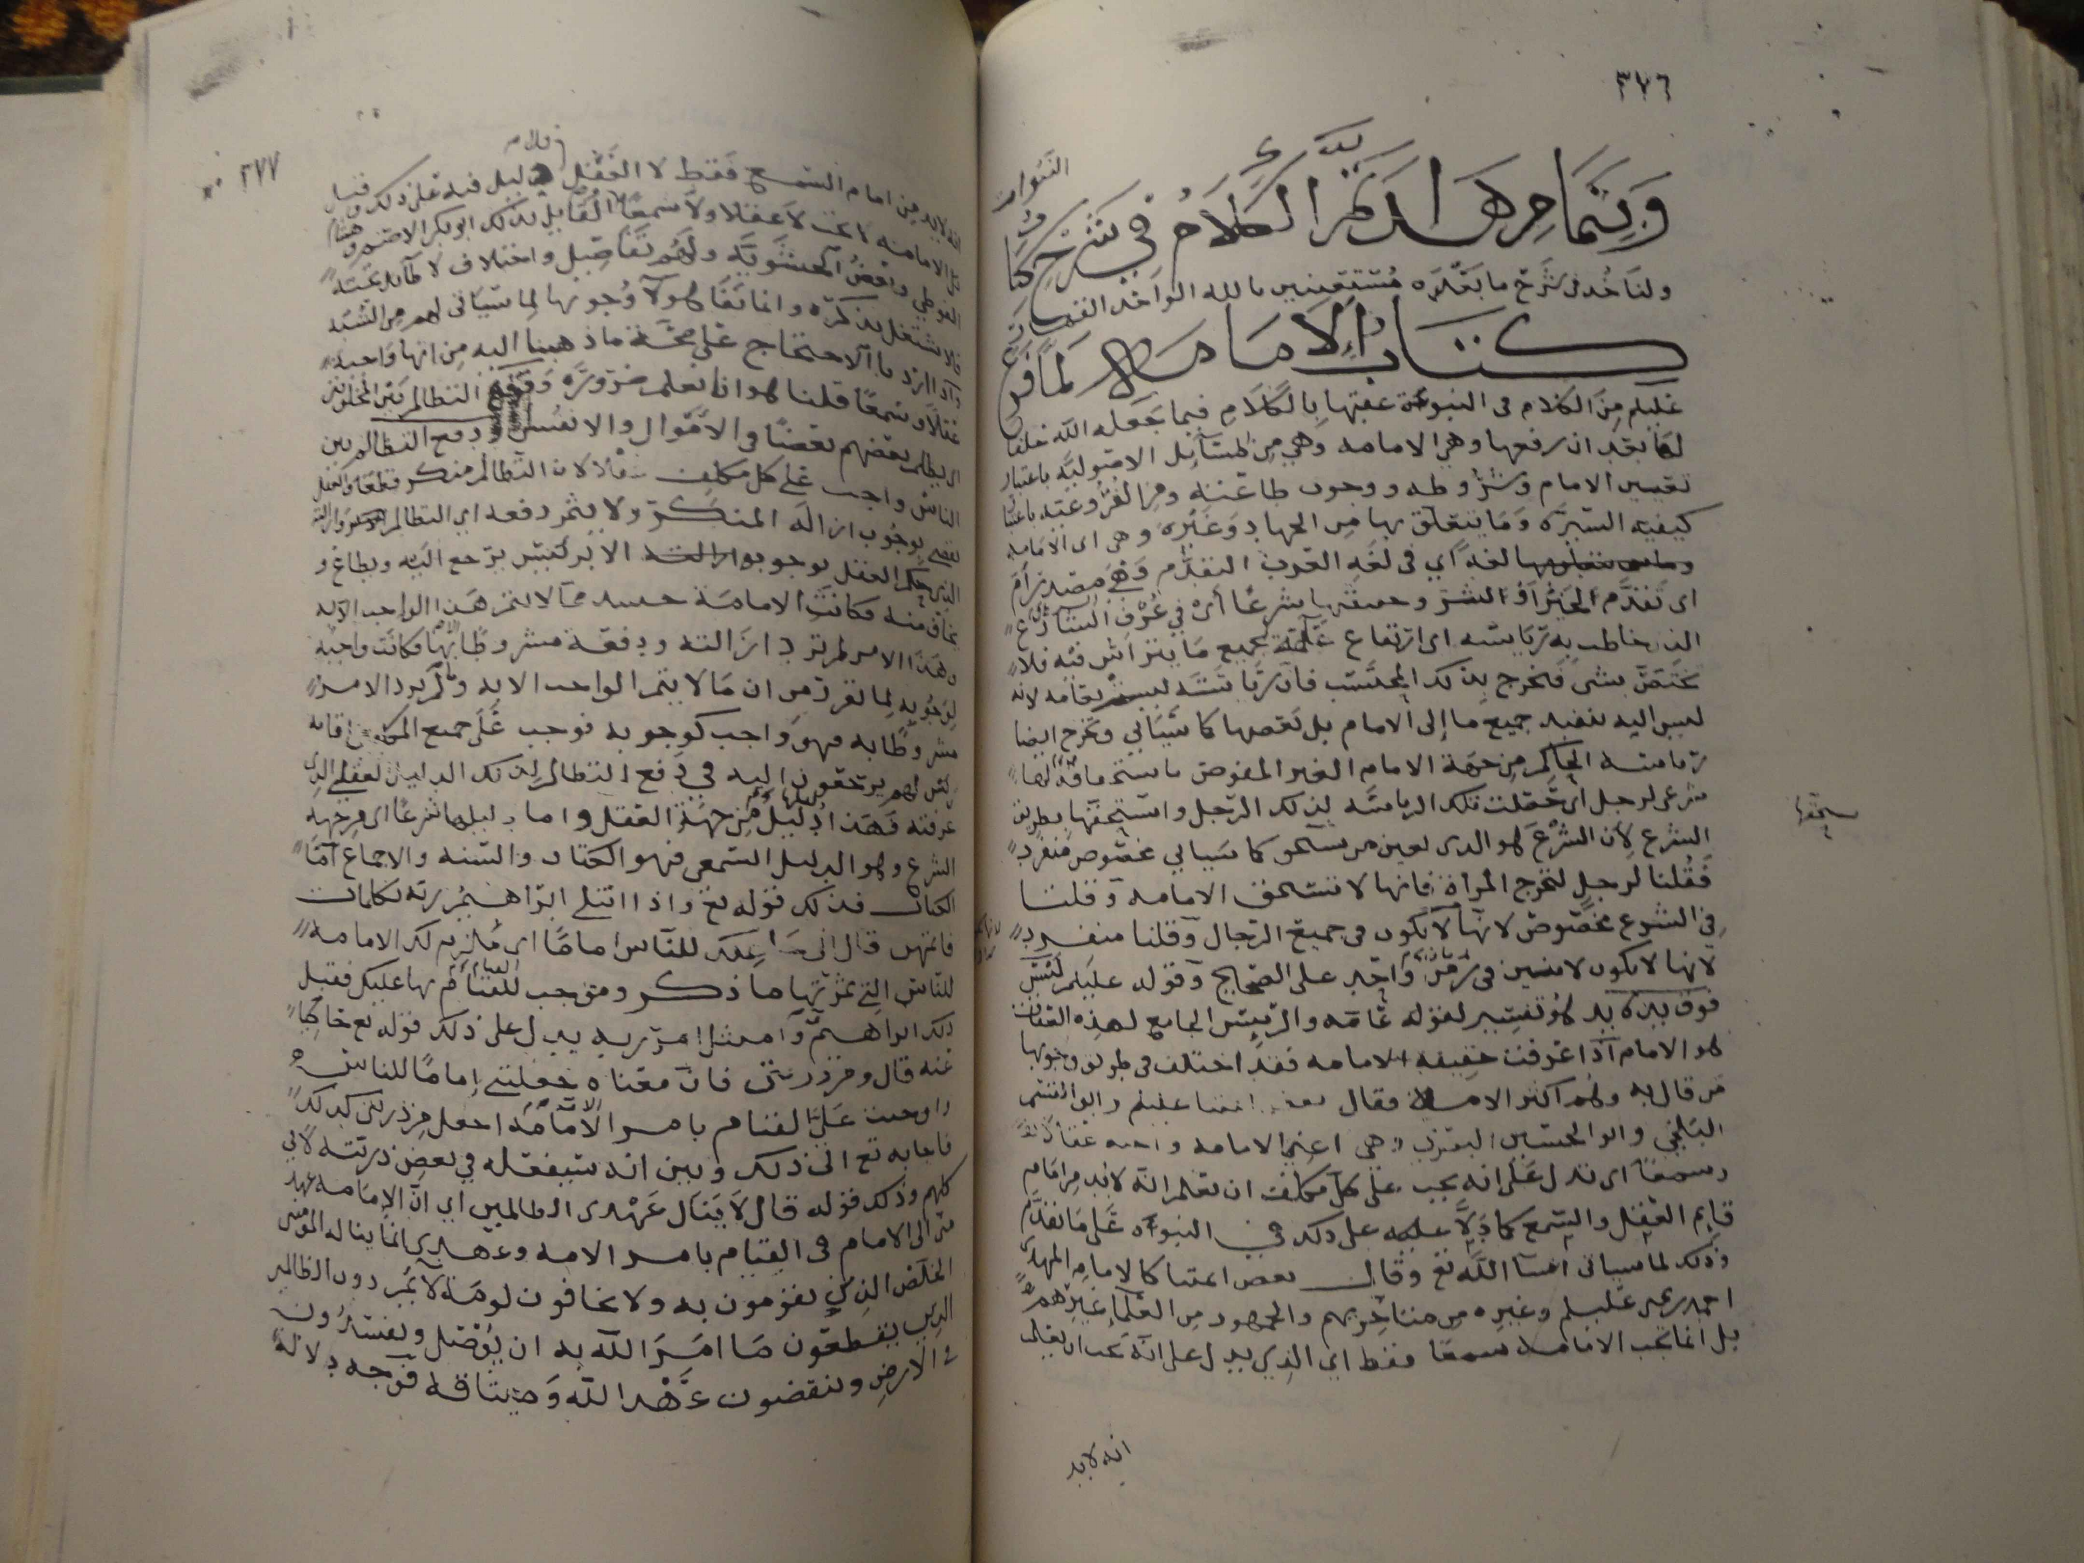 ٣٧٦
وبتمام هذا تم الكلام في شرح كتاب
النبوات
ولنأخذ في شرح ما بعده مستعينين بالله الواحد القهار
كتاب الإمامة لما فرغ
عليلم من الكلام في النبوة عقبها بالكلام فيما يجعله الله خلفا
لها بعد ان رفعها وهي الامامة وهي من المسائل الاصولية باعتبار
تعيين الامام وشروطه ووجوب طاعته ومن الفروعية باعتبار
كيفية السيرة وما يتعلق بها من الجهاد وغيره وهي اي الامامة
لغة اي في لغة العرب التقدم وهي مصدر أمّ
اي تقدم الخير أو الشر وحقيقتها شرعا أي في عرف الشارع
الذي خاطب به رياسة اي ارتفاع عامة لجميع ما يترأس فيه فلا
تختص بشيء فخرج بذلك المحتسب فان رياسته ليست بعامة لانه
ليس اليه تنفيذ جميع ما إلى الامام بل بعضها كما سيأتي وتخرج ايضا
رياسة الحاكم من جهة الامام الغير المفوض
شرعي لرجل أي جعلت تلك الرياسة لذلك الرجل واستحقها بطريق
يستحقها
الشرع لأن الشرع هو الذي يعين من يستحق كما سيأتي مخصوص منفرد
فقلنا لرجل لتخرج المرأة فانها لا تستحق الامامة وقلنا
في الشرع مخصوص لانها لا تكون في جميع الرجال وقلنا منفرد
لانها لا تكون لامامين في زمن واحد على الصحيح وقوله عليلم ليس
فوق يده يد هو تفسير لقوله عامة والرئيس الجامع لهذه القيود
هو الامام اذا عرفت حقيقة الامامة فقد اختلف في طريق وجوبها
من قال به وهم اكثر الامة فقال بعض ائمتنا عليلم وابو القاسم
البلخي وابو الحسين البصري هي اعني الامامة واجبة عقلا
وسمعا اي تدل على انه يجب على كل مكلف ان يعلم انه لابد من امام
قايم العقل والسمع كما دلا عليه على ذلك في النبوة على ما تقدم
وذلك لما سياتي انشا الله تع وقال بعض ائمتنا كالامام المهدي
احمد بن يحيى عليلم وغيره من متأخريهم والجمهور من العلما غيرهم
بل انما تجب الامامة سمعا فقط اي الذي يدل على انه يجب ان يعلم
انه لابد
٣٧٧
انه لابد من امام السمع فقط لا العقل فلا دليل فيه على ذلك وقيل
بل الامامة لا تجب لا عقلا ولا سمعا القايل بذلك ابو بكر الاصم وهشام
الفوطي وبعض الحشوية ولهم تفاصيل واختلاف لا طايل تحته
فلا نشتغل بذكره وانما نفا هولا وجوبها لما سيأتي لهم من الشبه
الرد بالاحتجاج على صحة ما ذهبنا اليه من انها واجبة
عقلا وسمعا قلنا هو انا نعلم ضرورة وقوع التظالم بين المخلوقين
اي يظلم بعضهم بعضا في الأموال والانفس ودفع التظالم بين
الناس واجب على كل مكلف عقلا لان التظالم منكر قطعا والعقل
يقضي بوجوب ازالة المنكر ولا يتم دفعه اي التظالم
الذي حكم العقل بوجوبه الا برئيس يرجع اليه ويطاع و
يخاف منه فكانت الامامة حينئذ مما لا يتم هذا الواجب الا به
وهذا الامر لم ترد ازالته ودفعه مشروطا بها فكانت واجبة
لوجوبه لما تقرر من ان ما لا يتم الواجب الا به ولم يرد الامر
مشروطا به فهو واجب كوجوبه فوجب على جميع المكلفين اقامة
رئيس لهم يرجعون اليه في دفع التظالم لذلك الدليل العقلي الذي
عرفته فهذا دليلها من جهة العقل واما دليلها شرعا اي من جهة
الشرع وهو الدليل السمعي فهو الكتاب والسنة والاجماع أما
الكتاب فذلك قوله تع واذ ابتلى ابراهيم ربه بكلمات
فاتمهن قال اني جاعلك للناس اماما اي ملزم لك الامامة
للناس التي ثمرتها ما ذكر وموجب للقيام بها عليك فقبل
ذلك ابراهيم وامتثل امر ربه يدل على ذلك قوله تع حاكيا
عنه قال ومن ذريتي فان معناه جعلتني إماما للناس
واوجبت عليّ القيام بامر الامامة اجعل من ذريتي كذلك
فاجابه تع الى ذلك وبين انه سيفعله في بعض ذريته لا في
كلهم وذلك قوله قال لا ينال عهدي الظالمين اي ان الإمامة عهد
مني الى الامام في القيام بامر الامة وعهدي انما يناله المؤمنين
الخلص الذين يقومون به ولا يخافون لومة لائم دون الظالمين
الذين يقطعون ما امر الله به ان يوصل ويفسدون
في الارض وينقضون عهد الله وميثاقه فوجه دلالة